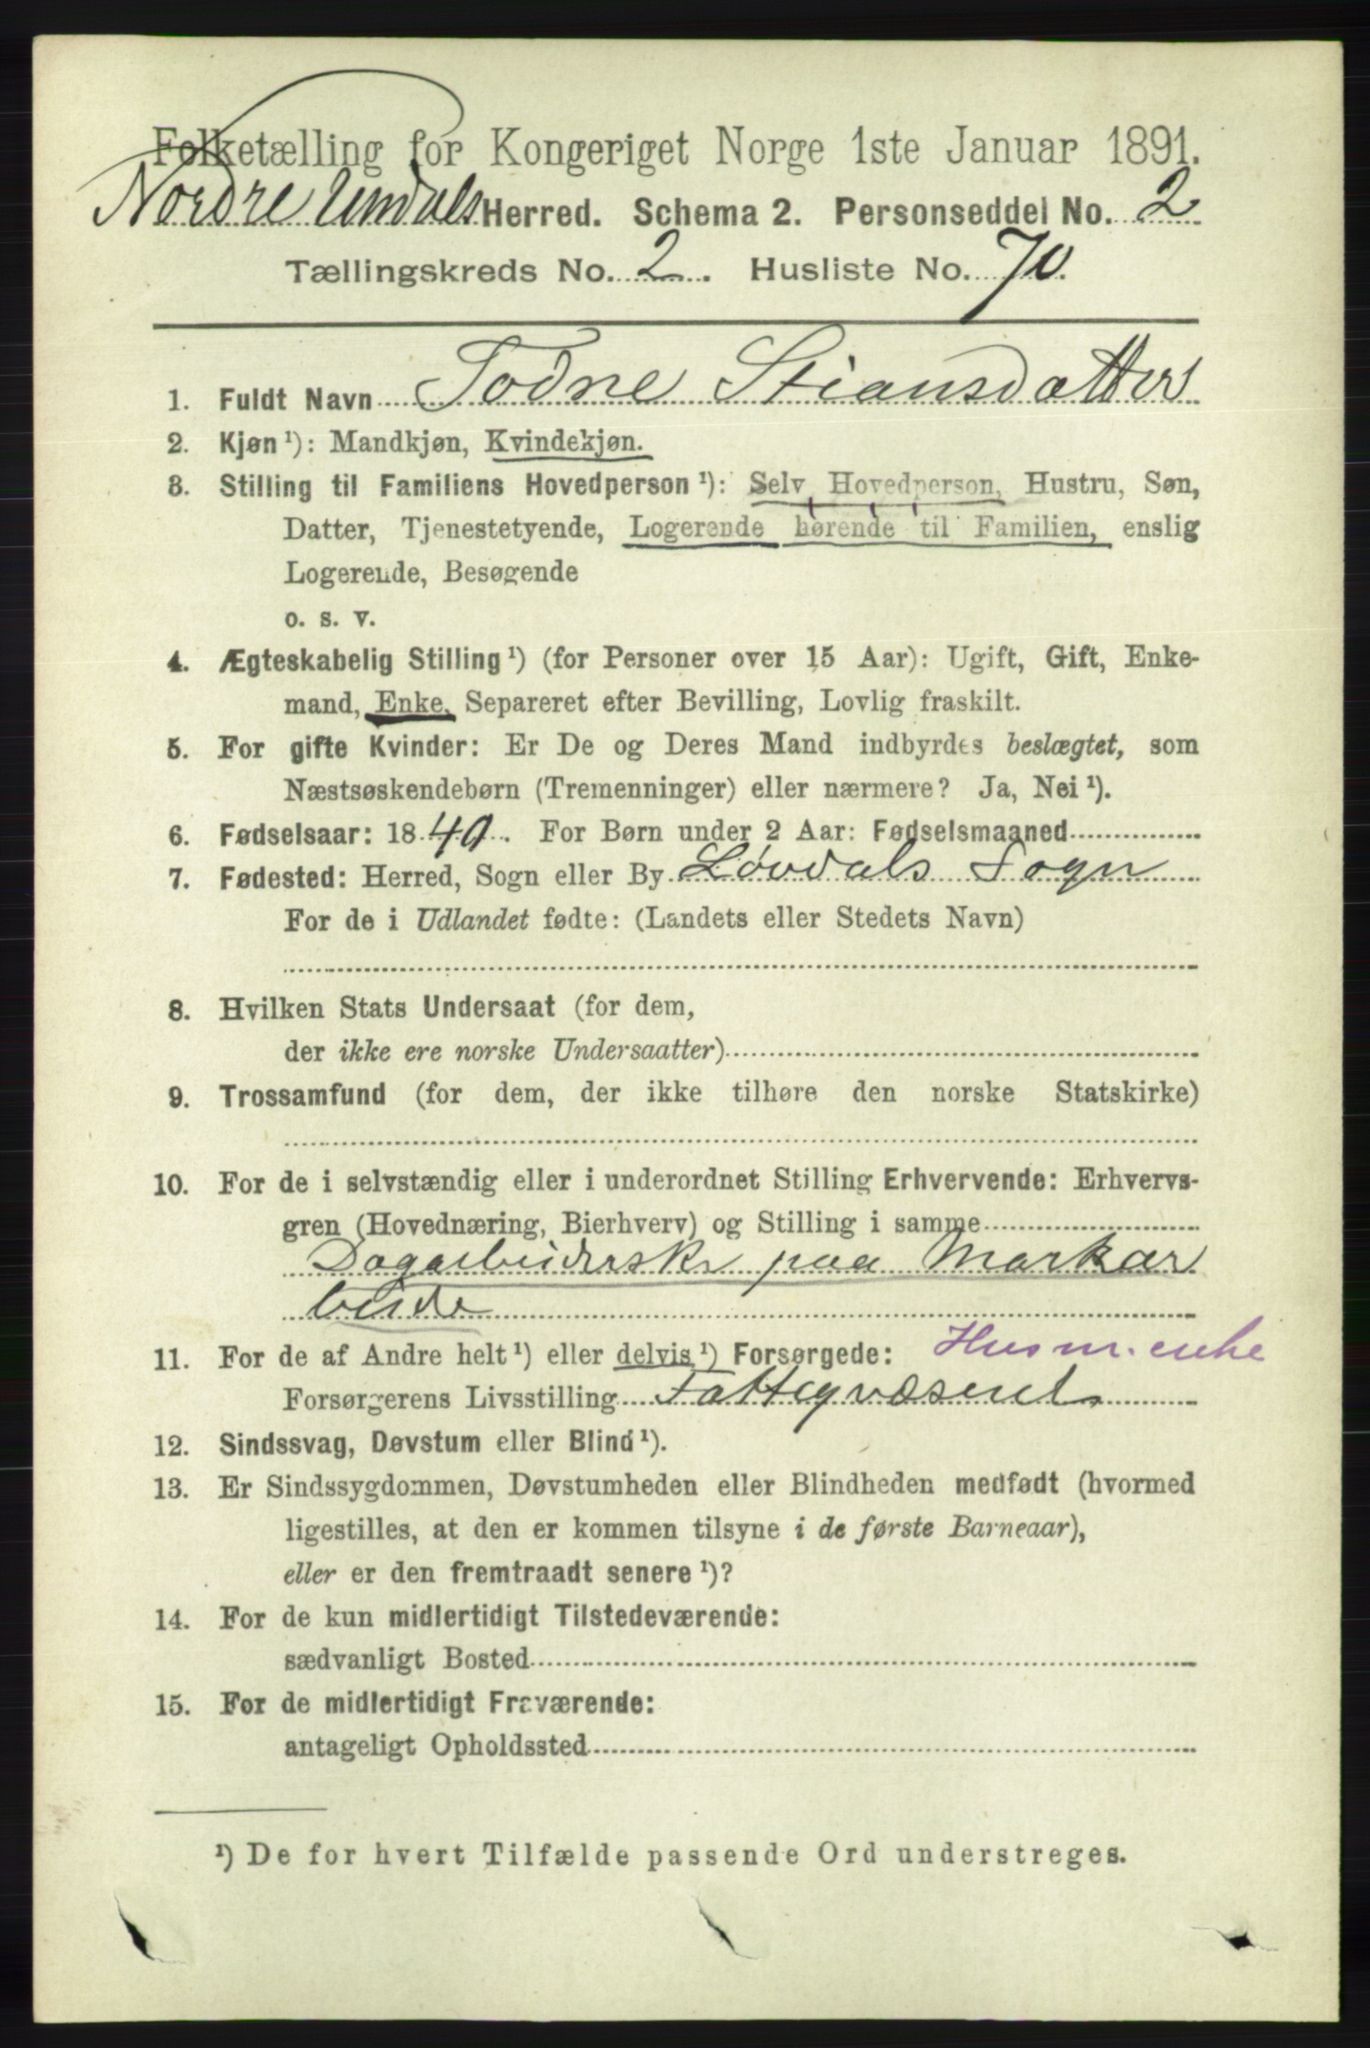 Folketælling for Kongeriget Norge 1ste Januar 1891.
Nordre Undals Herred. Schema 2. Personseddel No. 2
Tællingskreds No. 2. Husliste No. 70.
1. Fuldt Navn Todne Stiansdatter
2. Kjøn ¹): Mandkjøn, Kvindekjøn.
3. Stilling til Familiens Hovedperson ¹): Selv Hovedperson, Hustru, Søn,
Datter, Tjenestetyende, Logerende hørende til Familien, enslig
Logerende, Besøgende
o. s. v.
4. Ægteskabelig Stilling ¹) (for Personer over 15 Aar): Ugift, Gift, Enke-
mand, Enke, Separeret efter Bevilling, Lovlig fraskilt.
5. For gifte Kvinder: Er De og Deres Mand indbyrdes beslægtet, som
Næstsøskendebørn (Tremenninger) eller nærmere? Ja, Nei ¹).
6. Fødselsaar: 1849. For Børn under 2 Aar: Fødselsmaaned
7. Fødested: Herred, Sogn eller By Løvdals Sogn
For de i Udlandet fødte: (Landets eller Stedets Navn)
8. Hvilken Stats Undersaat (for dem,
der ikke ere norske Undersaatter)
9. Trossamfund (for dem, der ikke tilhøre den norske Statskirke)
10. For de i selvstændig eller i underordnet Stilling Erhvervende: Erhvervs-
gren (Hovednæring, Bierhverv) og Stilling i samme
Dagarbeiderske paa Markar
beide
11. For de af Andre helt ¹) eller delvis ¹) Forsørgede: Husm. enke
Forsørgerens Livsstilling Fattigvæsenet
12. Sindssvag, Døvstum eller Blind ¹).
13. Er Sindssygdommen, Døvstumheden eller Blindheden medfødt (hvormed
ligestilles, at den er kommen tilsyne i de første Barneaar),
eller er den fremtraadt senere ¹)?
14. For de kun midlertidigt Tilstedeværende:
sædvanligt Bosted
15. For de midlertidigt Fraværende:
antageligt Opholdssted
¹) De for hvert Tilfælde passende Ord understreges.